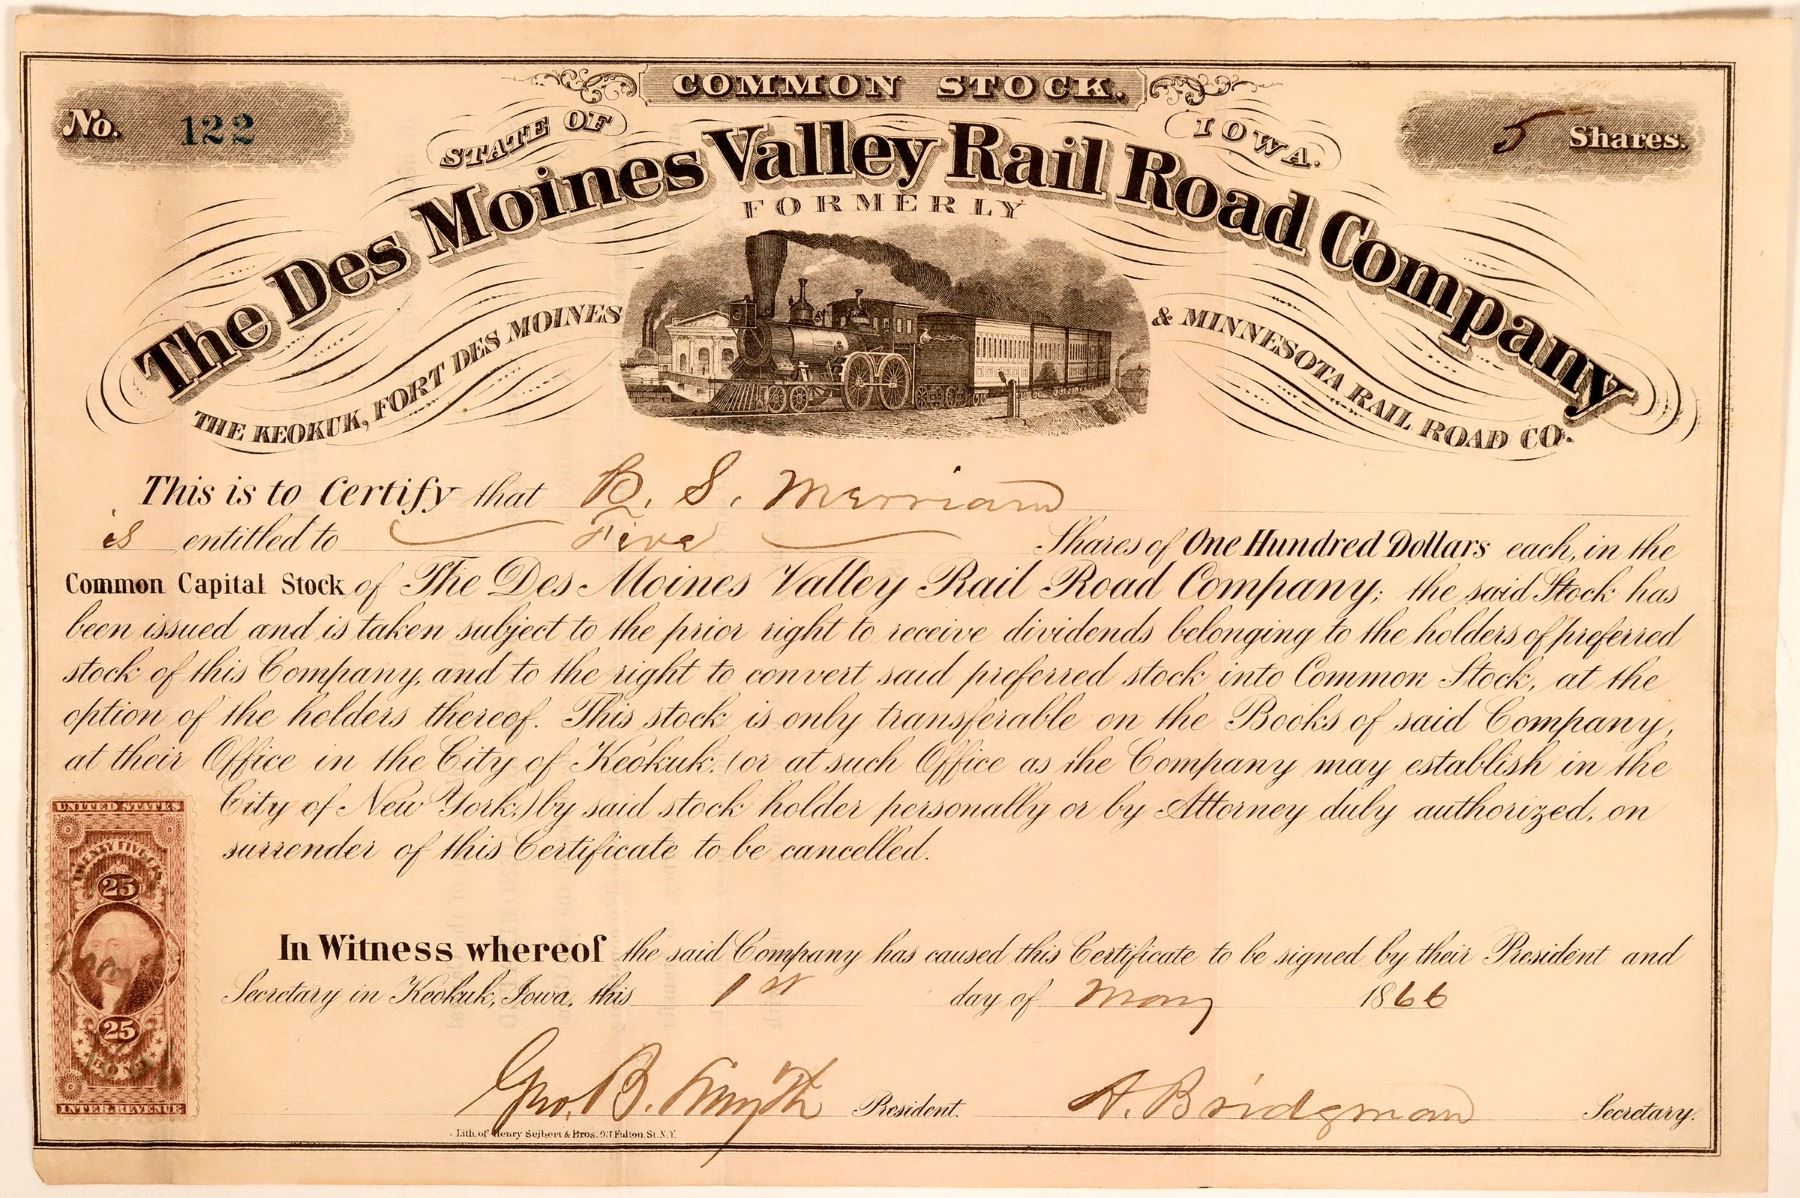 COMMON STOCK.
No. 122
STATE OF IOWA.
5 Shares.
The Des Moines Valley Rail Road Company
FORMERLY
THE KEOKUK, FORT DES MOINES & MINNESOTA RAIL ROAD CO.
This is to Certify that B. S. Merriam
is entitled to Five Shares of One Hundred Dollars each, in the
Common Capital Stock of The Des Moines Valley Rail Road Company; the said Stock has
been issued and is taken subject to the prior right to receive dividends belonging to the holders of preferred
stock of this Company, and to the right to convert said preferred stock into Common Stock, at the
option of the holders thereof. This stock is only transferable on the Books of said Company,
at their Office in the City of Keokuk, (or at such Office as the Company may establish in the
City of New York,) by said stock holder personally or by Attorney duly authorized, on
surrender of this Certificate to be cancelled.
UNITED STATES
TWENTY FIVE CTS.
25
25
BOND
INTER. REVENUE
In Witness whereof the said Company has caused this Certificate to be signed by their President and
Secretary in Keokuk, Iowa, this 1st day of May 1866
Geo. B. Smyth President. A. Bridgman Secretary.
Lith. of Henry Seibert & Bros. 93 Fulton St. N.Y.